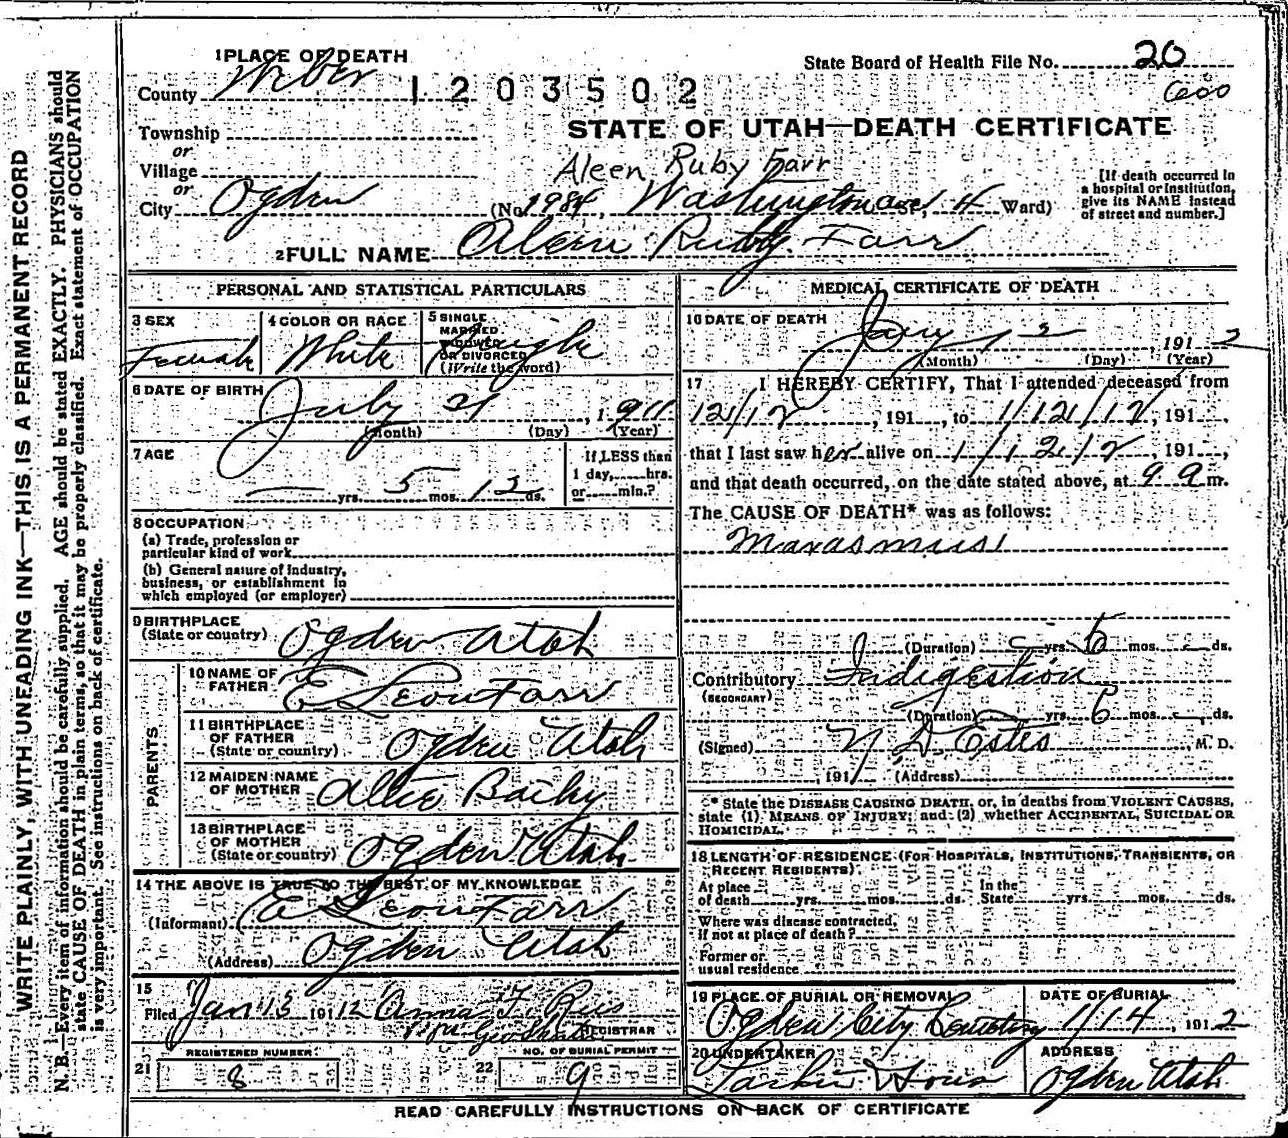 WRITE PLAINLY, WITH UNFADING INK—THIS IS A PERMANENT RECORD
N. B.—Every item of information should be carefully supplied. AGE should be stated EXACTLY. PHYSICIANS should
state CAUSE OF DEATH in plain terms, so that it may be properly classified. Exact statement of OCCUPATION
is very important. See instructions on back of certificate.
1 PLACE OF DEATH
State Board of Health File No. 20
County Weber 1203502
600
Township
STATE OF UTAH—DEATH CERTIFICATE
or
Village
Aleen Ruby Farr
or
City Ogden (No. 1984, Washington ave St., 4 Ward)
[If death occurred in
a hospital or institution,
give its NAME instead
of street and number.]
2 FULL NAME Aleen Ruby Farr
PERSONAL AND STATISTICAL PARTICULARS
3 SEX
Female
4 COLOR OR RACE
White
5 SINGLE
MARRIED
WIDOWED
OR DIVORCED
(Write the word)
Single
6 DATE OF BIRTH
July 31, 1911
(Month) (Day) (Year)
7 AGE
— yrs. 5 mos. 12 ds.
If LESS than
1 day, hrs.
or min.?
8 OCCUPATION
(a) Trade, profession or
particular kind of work
(b) General nature of industry,
business, or establishment in
which employed (or employer)
9 BIRTHPLACE
(State or country) Ogden Utah
PARENTS
10 NAME OF
FATHER E Leon Farr
11 BIRTHPLACE
OF FATHER
(State or country) Ogden Utah
12 MAIDEN NAME
OF MOTHER Altie
13 BIRTHPLACE
OF MOTHER
(State or country) Ogden Utah
14 THE ABOVE IS TRUE TO THE BEST OF MY KNOWLEDGE
(Informant) E Leon Farr
(Address) Ogden Utah
15
Filed Jan 13 1912 Anna F.
REGISTRAR
21 REGISTERED NUMBER
8
22 NO. OF BURIAL PERMIT
9
MEDICAL CERTIFICATE OF DEATH
16 DATE OF DEATH
Jany 12, 1912
(Month) (Day) (Year)
17 I HEREBY CERTIFY, That I attended deceased from
, 191, to 1/12/12, 191,
that I last saw her alive on 1/12/12, 191,
and that death occurred, on the date stated above, at 9 a m.
The CAUSE OF DEATH* was as follows:
Marasmus
(Duration) — yrs. 5 mos. — ds.
Contributory Indigestion
(SECONDARY)
(Duration) — yrs. 5 mos. — ds.
(Signed) N D Estes, M. D.
, 191 (Address)
* State the DISEASE CAUSING DEATH, or, in deaths from VIOLENT CAUSES,
state (1) MEANS OF INJURY; and (2) whether ACCIDENTAL, SUICIDAL OR
HOMICIDAL.
18 LENGTH OF RESIDENCE (FOR HOSPITALS, INSTITUTIONS, TRANSIENTS, OR
RECENT RESIDENTS).
At place
of death yrs. mos. ds.
In the
State yrs. mos. ds.
Where was disease contracted,
if not at place of death?
Former or
usual residence
19 PLACE OF BURIAL OR REMOVAL
Ogden City Cemetery
DATE OF BURIAL
1/14, 1912
20 UNDERTAKER
Larkin & Sons
ADDRESS
Ogden Utah
READ CAREFULLY INSTRUCTIONS ON BACK OF CERTIFICATE